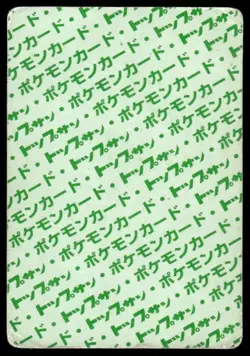 トップサン・
ポケモンカード・
トップサン・ポケモンカード・
ポケモンカード・トップサン・
・トップサン・ポケモンカード・
ポケモンカード・トップサン・
トップサン・ポケモンカード・
ポケモンカード・トップサン・
・トップサン・ポケモンカード・
ポケモンカード・トップサン・
トップサン・ポケモンカード・
ポケモンカード・トップサン・
ド・トップサン・ポケモンカード
ポケモンカード・トップサン・
トップサン・